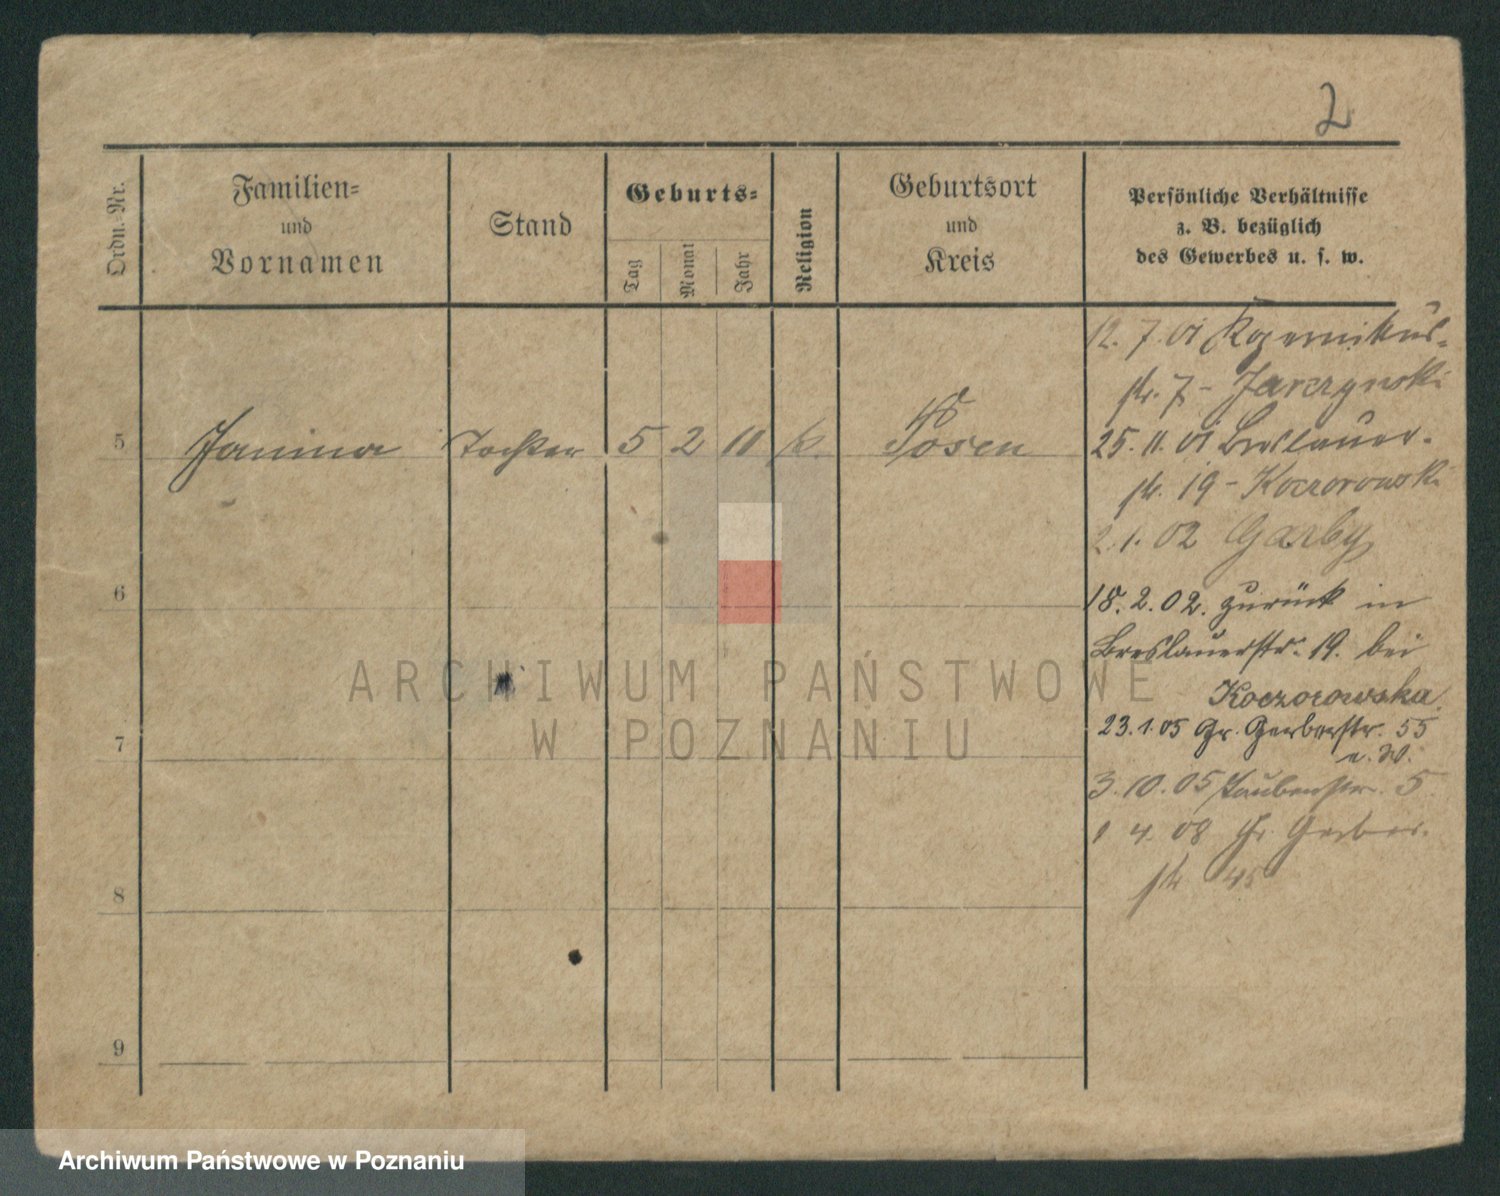 2
Ordn.-Nr.
Familien-
und
Vornamen
Stand
Geburts-
Tag
Monat
Jahr
Religion
Geburtsort
und
Kreis
Persönliche Verhältnisse
z. B. bezüglich
des Gewerbes u. s. w.
5 Janina Tochter 5 2 11 k. Posen
12. 7. 01 Kopernikus-
str. 7 - Jarczynski
25. 11. 01 Breslauer-
str. 19 - Koczorowski
2. 1. 02 Garby
18. 2. 02. zurück in
Breslauerstr. 19. bei
Koczorowska
23. 1. 05 Gr. Gerberstr. 55
e. W.
3. 10. 05 Taubenstr. 5
1 4. 08 Gr. Gerber-
str 45
6
7
8
9
ARCHIWUM PAŃSTWOWE
W POZNANIU
Archiwum Państwowe w Poznaniu